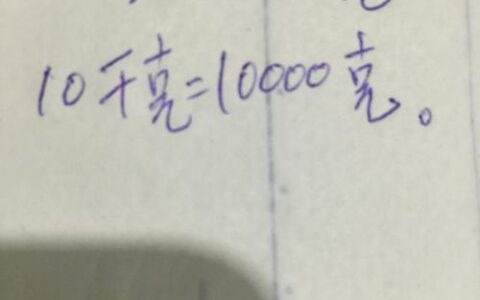 10千克=10000克。